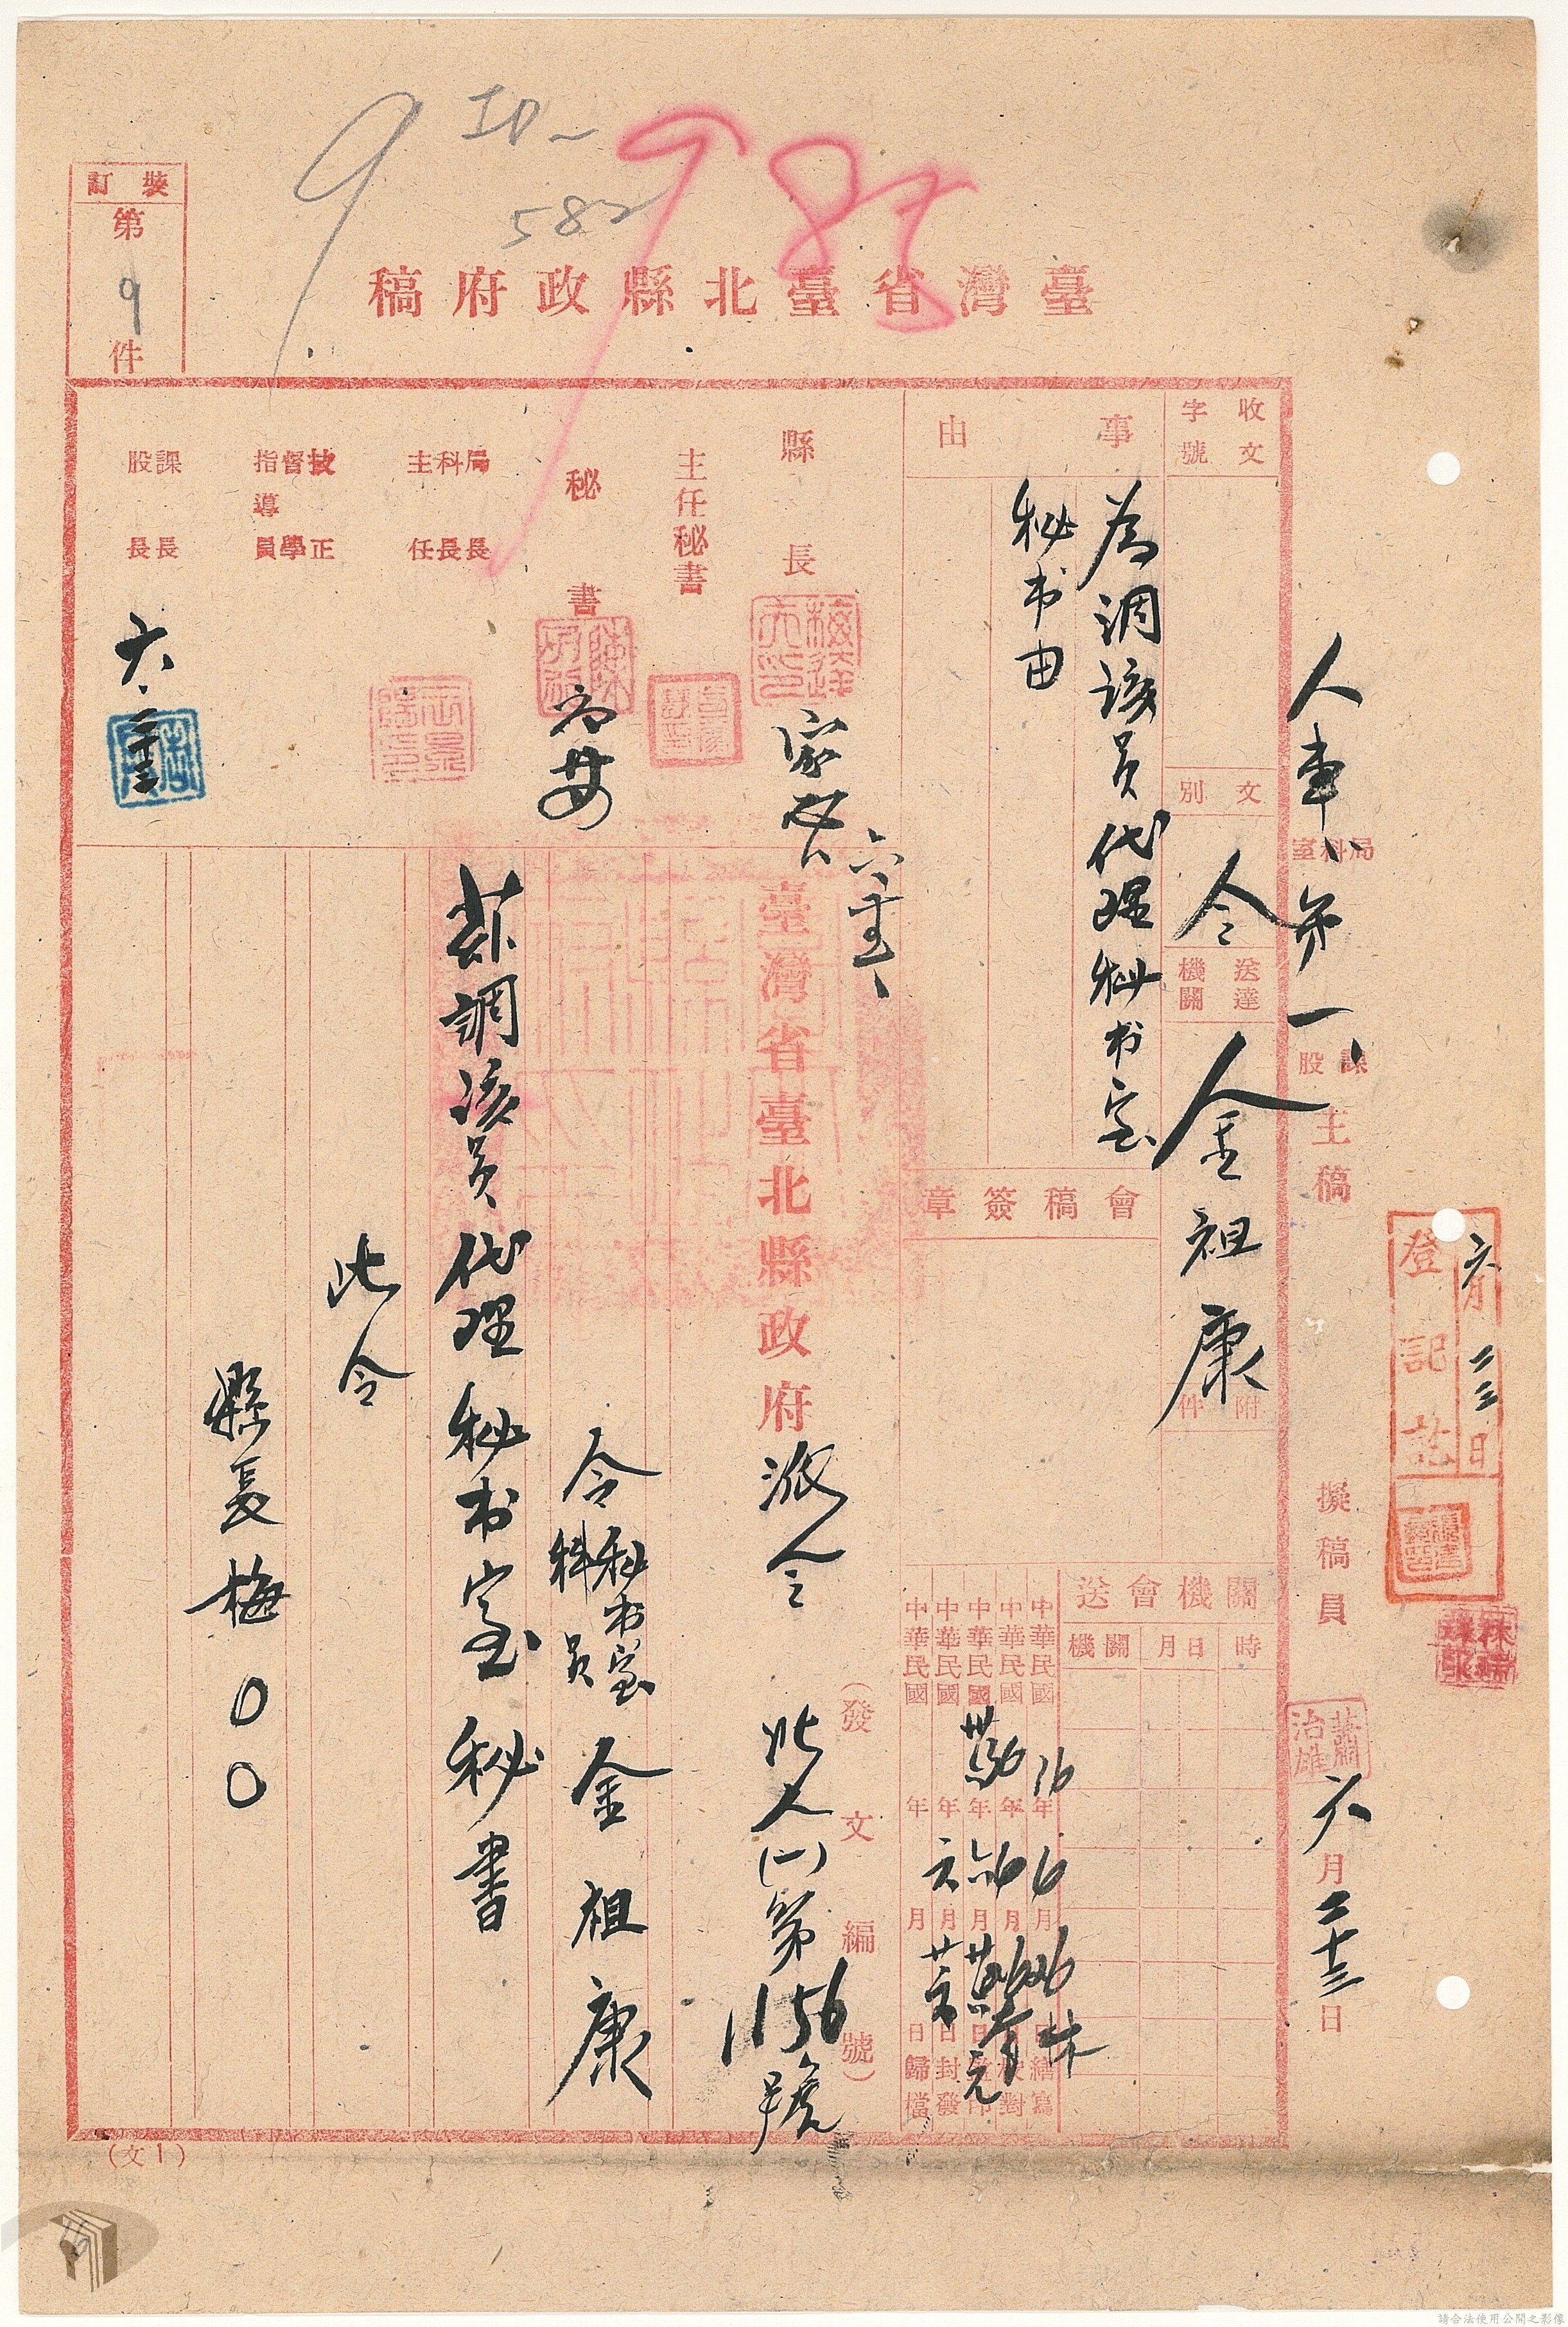 9
582
985
臺灣省臺北縣政府稿
裝訂
第
9
件
人事 室科局 第一 課股 主稿
擬稿員
六月二十三日
登記訖
六月二三日
收文
字號
文別
令
送達機關
金祖康
附件
事由
為調該員代理秘書室
秘书由
會稿簽章
關機會送
時
月日
機關
中華民國36年6月26日繕寫
中華民國36年6月26日校對
中華民國卅六年六月廿六日蓋印
中華民國年六月廿六日封發
中華民國年月日歸檔
縣長
主任秘書
秘書
局科主
長長任
技督指導
正學員
課股
長長
六.二十三
臺灣省臺北縣政府派令
(發文編號)
北人(一)第1156號
令秘书室科員金祖康
茲調該員代理秘书室秘書
此令
縣長梅〇〇
(文1)
請合法使用公開之影像